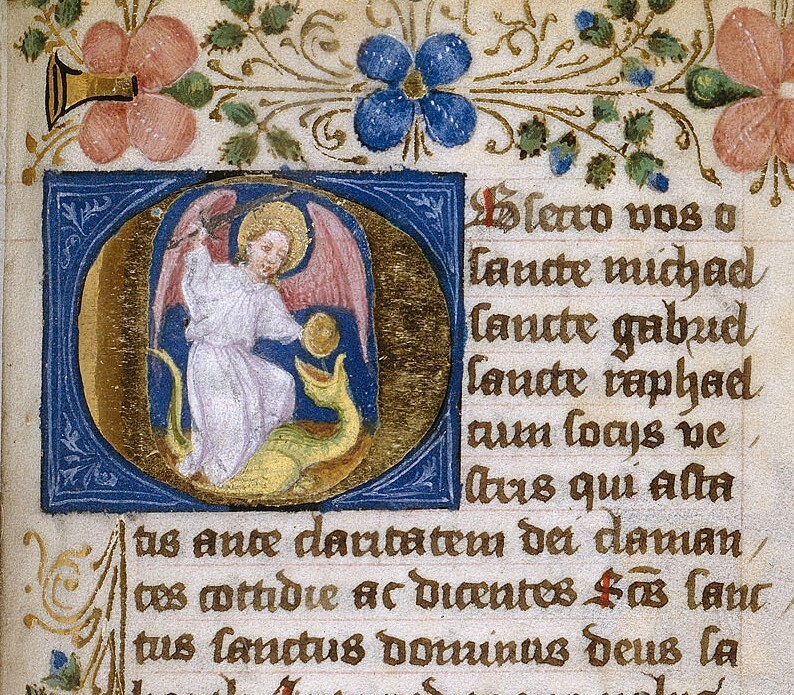 OBsecro vos o
sancte michael
sancte gabriel
sancte raphael
cum socijs ve /
stris qui asta
tis ante claritatem dei claman /
tes cottidie ac dicentes Sc̄s sanc /
tus sanctus dominus deus sa